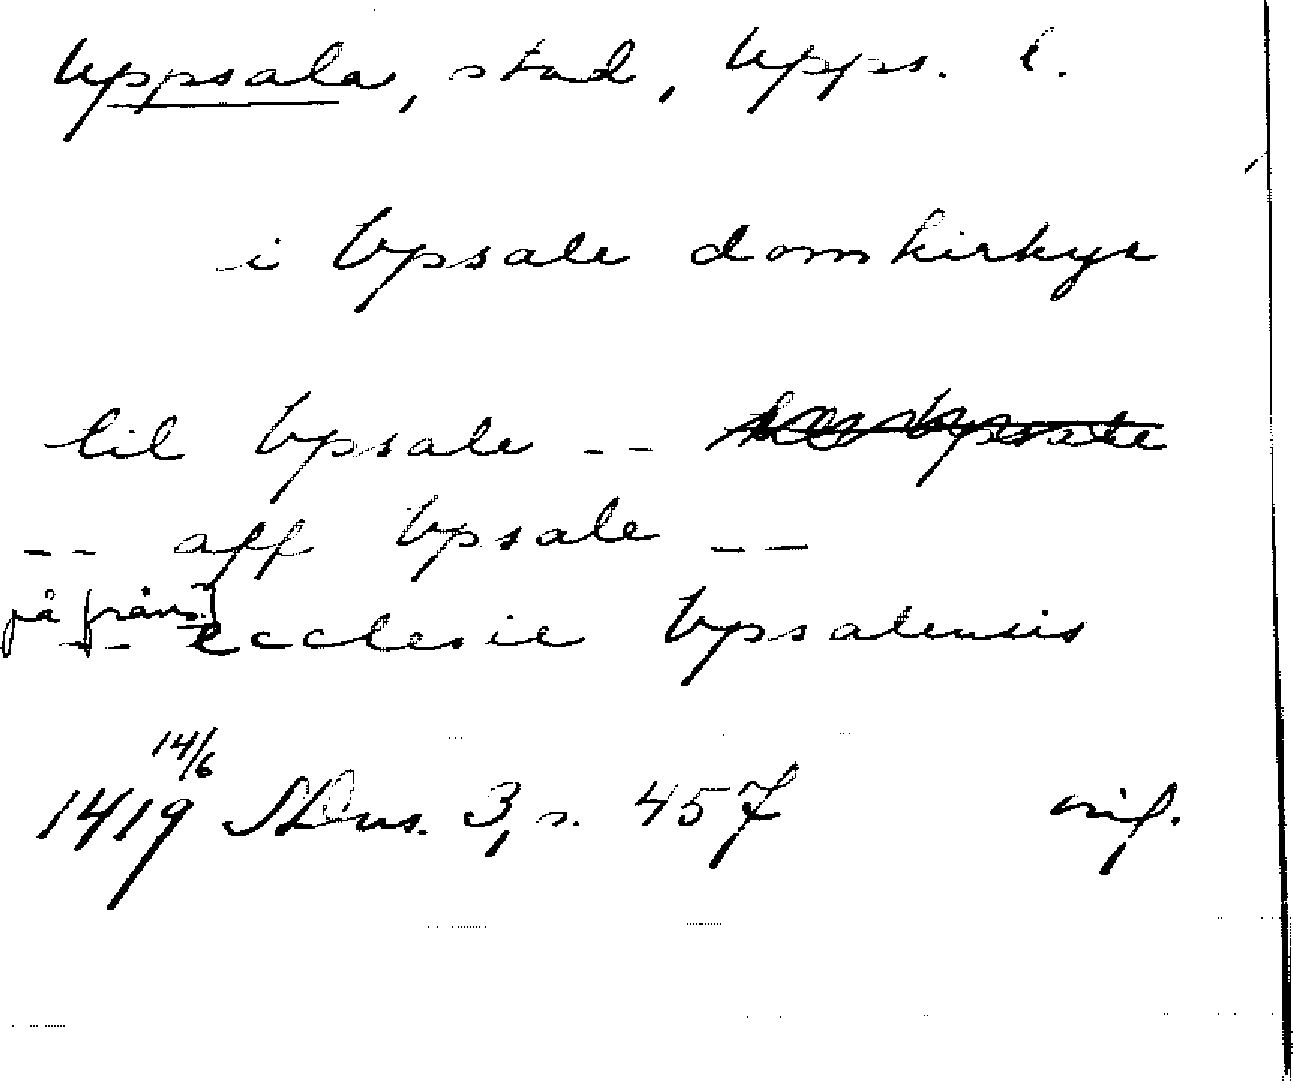 Uppsala, stad, Upps. l.
i Vpsale domkirkyr
til Vpsale --
-- aff Vpsale --
på fråns. -- ecclesie Vpsalensis
14/6
1419 SDns. 3, s. 457 orig.